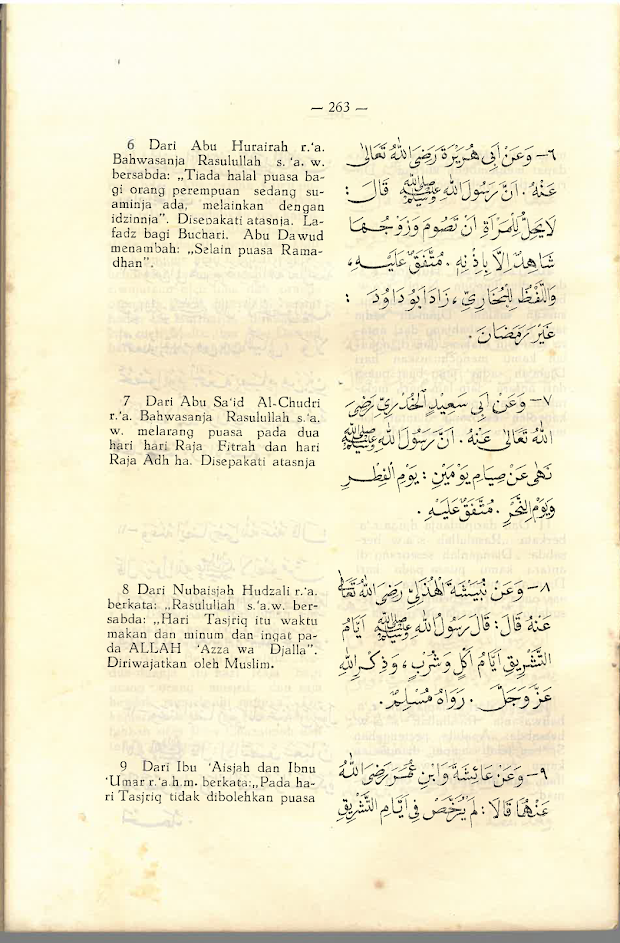 — 263 —
6 Dari Abu Hurairah r.‘a.
Bahwasanja Rasulullah s. ‘a. w.
bersabda: „Tiada halal puasa ba-
gi orang perempuan sedang su-
aminja ada, melainkan dengan
idzinnja”. Disepakati atasnja. La-
fadz bagi Buchari. Abu Dawud
menambah: „Selain puasa Rama-
dhan”.
٦- وَعَنْ اَبِى هُرَيْرَةَ رَضِىَ اللهُ تَعَالٰى
عَنْهُ . اَنَّ رَسُولَ اللهِ ﷺ قَالَ :
لَا يَحِلُّ لِلْمَرْاَةِ اَنْ تَصُومَ وَزَوْجُهَا
شَاهِدٌ اِلَّا بِاِذْنِهِ . مُتَّفَقٌ عَلَيْهِ ،
وَاللَّفْظُ لِلْبُخَارِيِّ ، زَادَ اَبُو دَاوُدَ :
غَيْرَ رَمَضَانَ .
7 Dari Abu Sa‘id Al-Chudri
r.‘a. Bahwasanja Rasulullah s.‘a.
w. melarang puasa pada dua
hari hari Raja Fitrah dan hari
Raja Adh ha. Disepakati atasnja
٧- وَعَنْ اَبِى سَعِيدٍ الْخُدْرِيِّ رَضِىَ
اللهُ تَعَالَى عَنْهُ . اَنَّ رَسُولَ اللهِ ﷺ
نَهَى عَنْ صِيَامِ يَوْمَيْنِ : يَوْمِ الْفِطْرِ
وَيَوْمِ النَّحْرِ . مُتَّفَقٌ عَلَيْهِ .
8 Dari Nubaisjah Hudzali r.‘a.
berkata: „Rasulullah s.‘a.w. ber-
sabda: „Hari Tasjriq itu waktu
makan dan minum dan ingat pa-
da ALLAH ‘Azza wa Djalla”.
Diriwajatkan oleh Muslim.
٨- وَعَنْ نُبَيْشَةَ الْهُذَلِيِّ رَضِىَ اللهُ تَعَالَى
عَنْهُ قَالَ : قَالَ رَسُولُ اللهِ ﷺ اَيَّامُ
التَّشْرِيقِ اَيَّامُ اَكْلٍ وَشُرْبٍ ، وَذِكْرِ اللهِ
عَزَّ وَجَلَّ . رَوَاهُ مُسْلِمٌ .
9 Dari Ibu ‘Aisjah dan Ibnu
‘Umar r.‘a.h.m. berkata:„Pada ha-
ri Tasjriq tidak dibolehkan puasa
٩- وَعَنْ عَائِشَةَ وَابْنِ عُمَرَ رَضِىَ اللهُ
عَنْهُمَا قَالَا : لَمْ يُرَخَّصْ فِى اَيَّامِ التَّشْرِيقِ